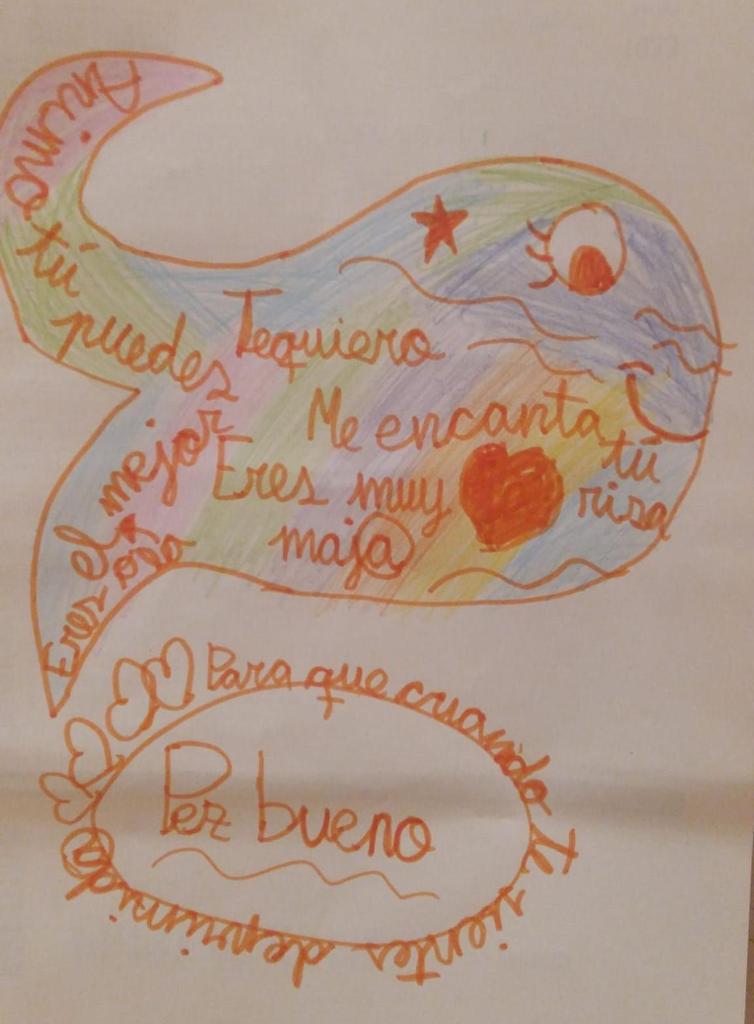 Animo
tú
puedes
Tequiero
Me encanta
tú
risa
Eres muy
maj@
Eres el mejor
o la
Para que cuando te sientes deprimid@
Pez bueno